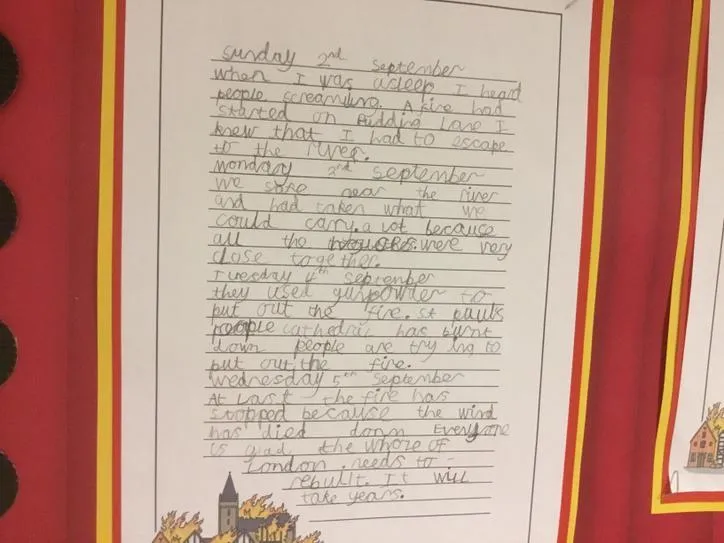 sunday 2nd September
when I was asleep I heard
people screaming. A fire had
started on Pudding Lane I
knew that I had to escape
to the river.
Monday 3rd September
We near the river
and had taken what we
could carry. a lot because
all the houses. were very
close together.
Tuesday 4th September
they used gunpowder to
put out the fire. st pauls
cathedral has burnt
down people are trying to
put out the fire.
Wednesday 5th September
At Last the fire has
stopped because the wind
has died down Everyone
is glad the whore of
London. needs to -
rebuilt. It will
take years.